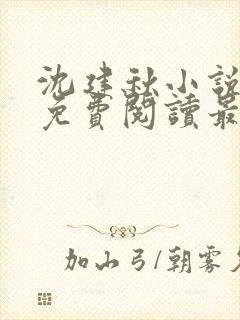 沈建秋小說
免費閱讀最
加山弓/朝雾